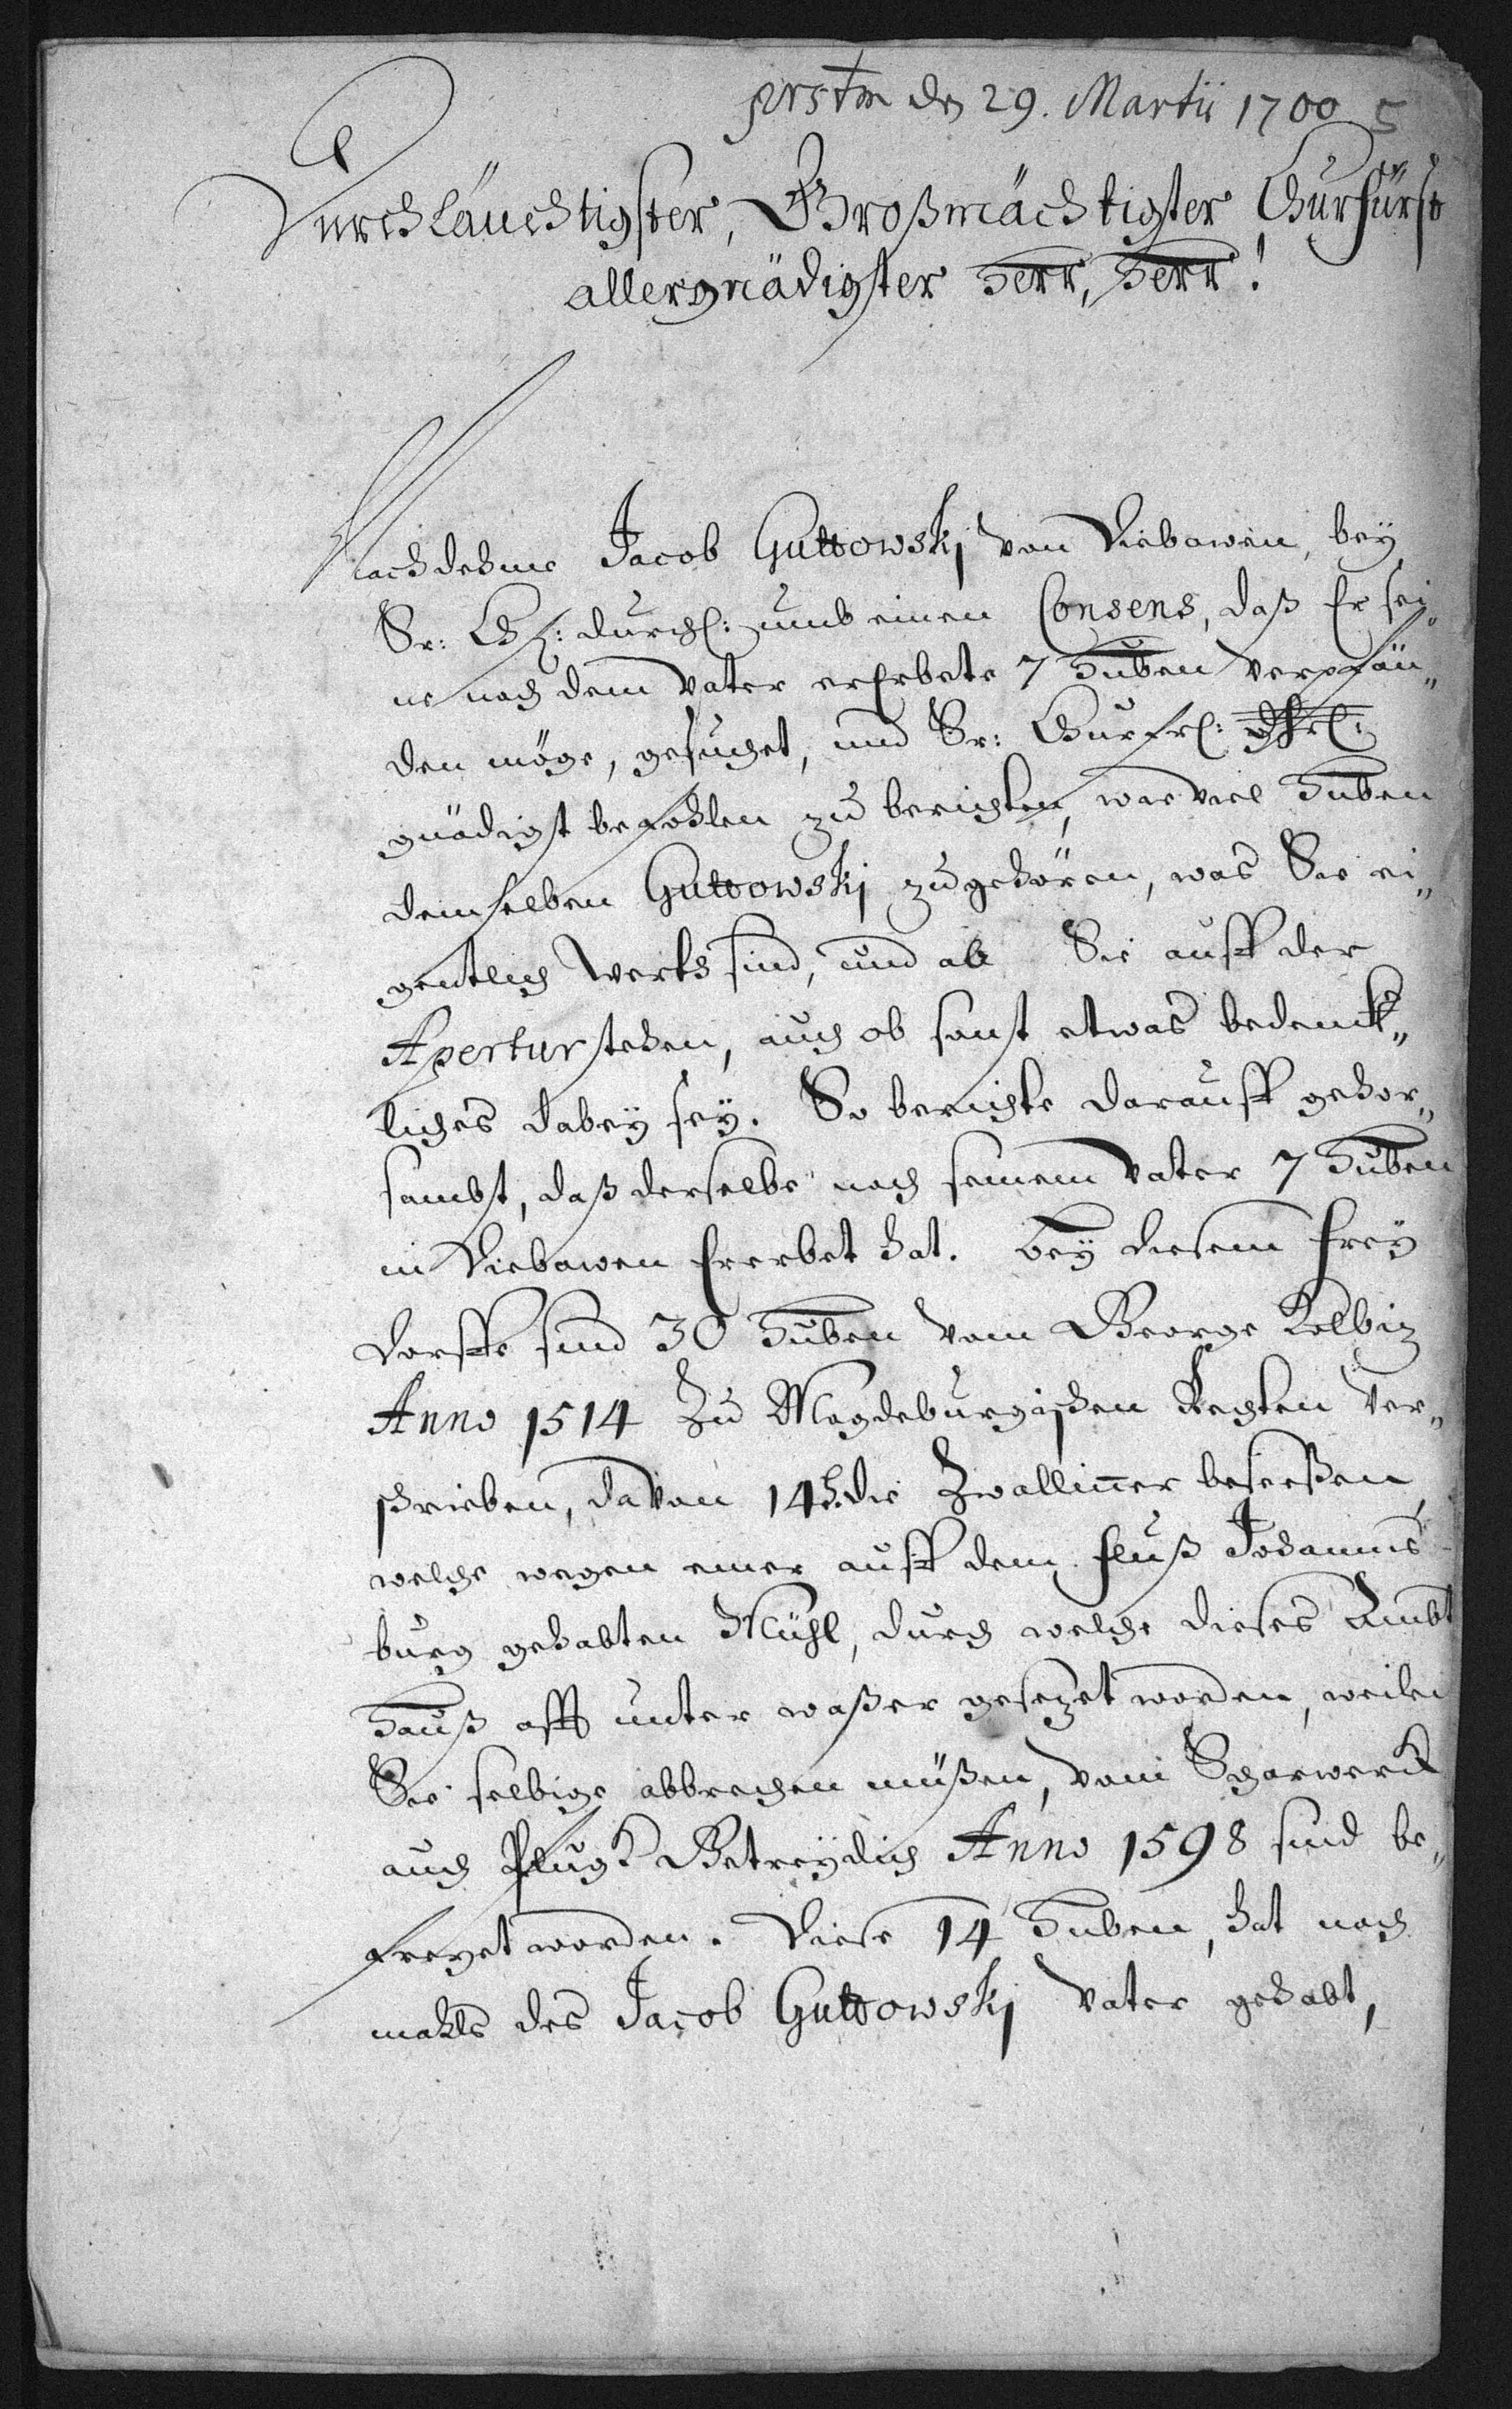 prstm den 29. Martii 1700 5
Durchläuchtigster, Großmächtigster Churfürst
allergnädigster Herr, Herr!
Nachdehme Jacob Guttowskj von Diebowen, bey
Sr: Chf: durchl: umb einen Consens, daß Er sei„
ne nach dem Vater erErbete 7 Huben verpfän„
den möge, gesuchet, und Sr: Churfrl:
gnädigst befohlen zu berichten, wie viel Huben
demselben Guttowskj zugehören, was Sie ei„
gentlich werth sind, und ob Sie auff der
Apertur stehen, auch ob sonst etwas bedenck„
liches dabey sey. So berichte darauff gehor„
sambst, daß derselbe nach seinem Vater 7 Huben
in Diebowen Ererbet hat. Bey diesem Frey
Dorffe sind 30 Huben vom George Kolbiz
Anno 1514 Zu Magdeburgischen Rechten Ver„
schrieben, davon 14 H. die Zwalliner beseeßen,
welche wegen einer auff dem Fluß Johannis
burg gehabten Mühl, durch welche dieses Ambt
Hauß offt unter waßer gesezet worden, weilen
Sie selbige abbrechen müßen, vom Scharwerck
auch Pflug Getreydich Anno 1598 sind be„
freyet worden. Diese 14 Huben, hat nach
mahls des Jacob Guttowskj Vater gehabt,